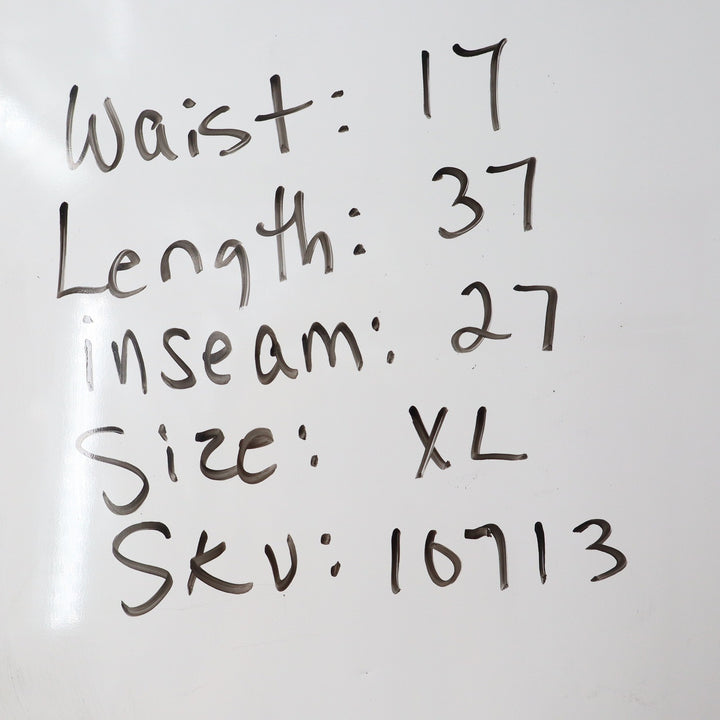 Waist: 17
Length: 37
inseam: 27
Size: XL
SKU: 10713